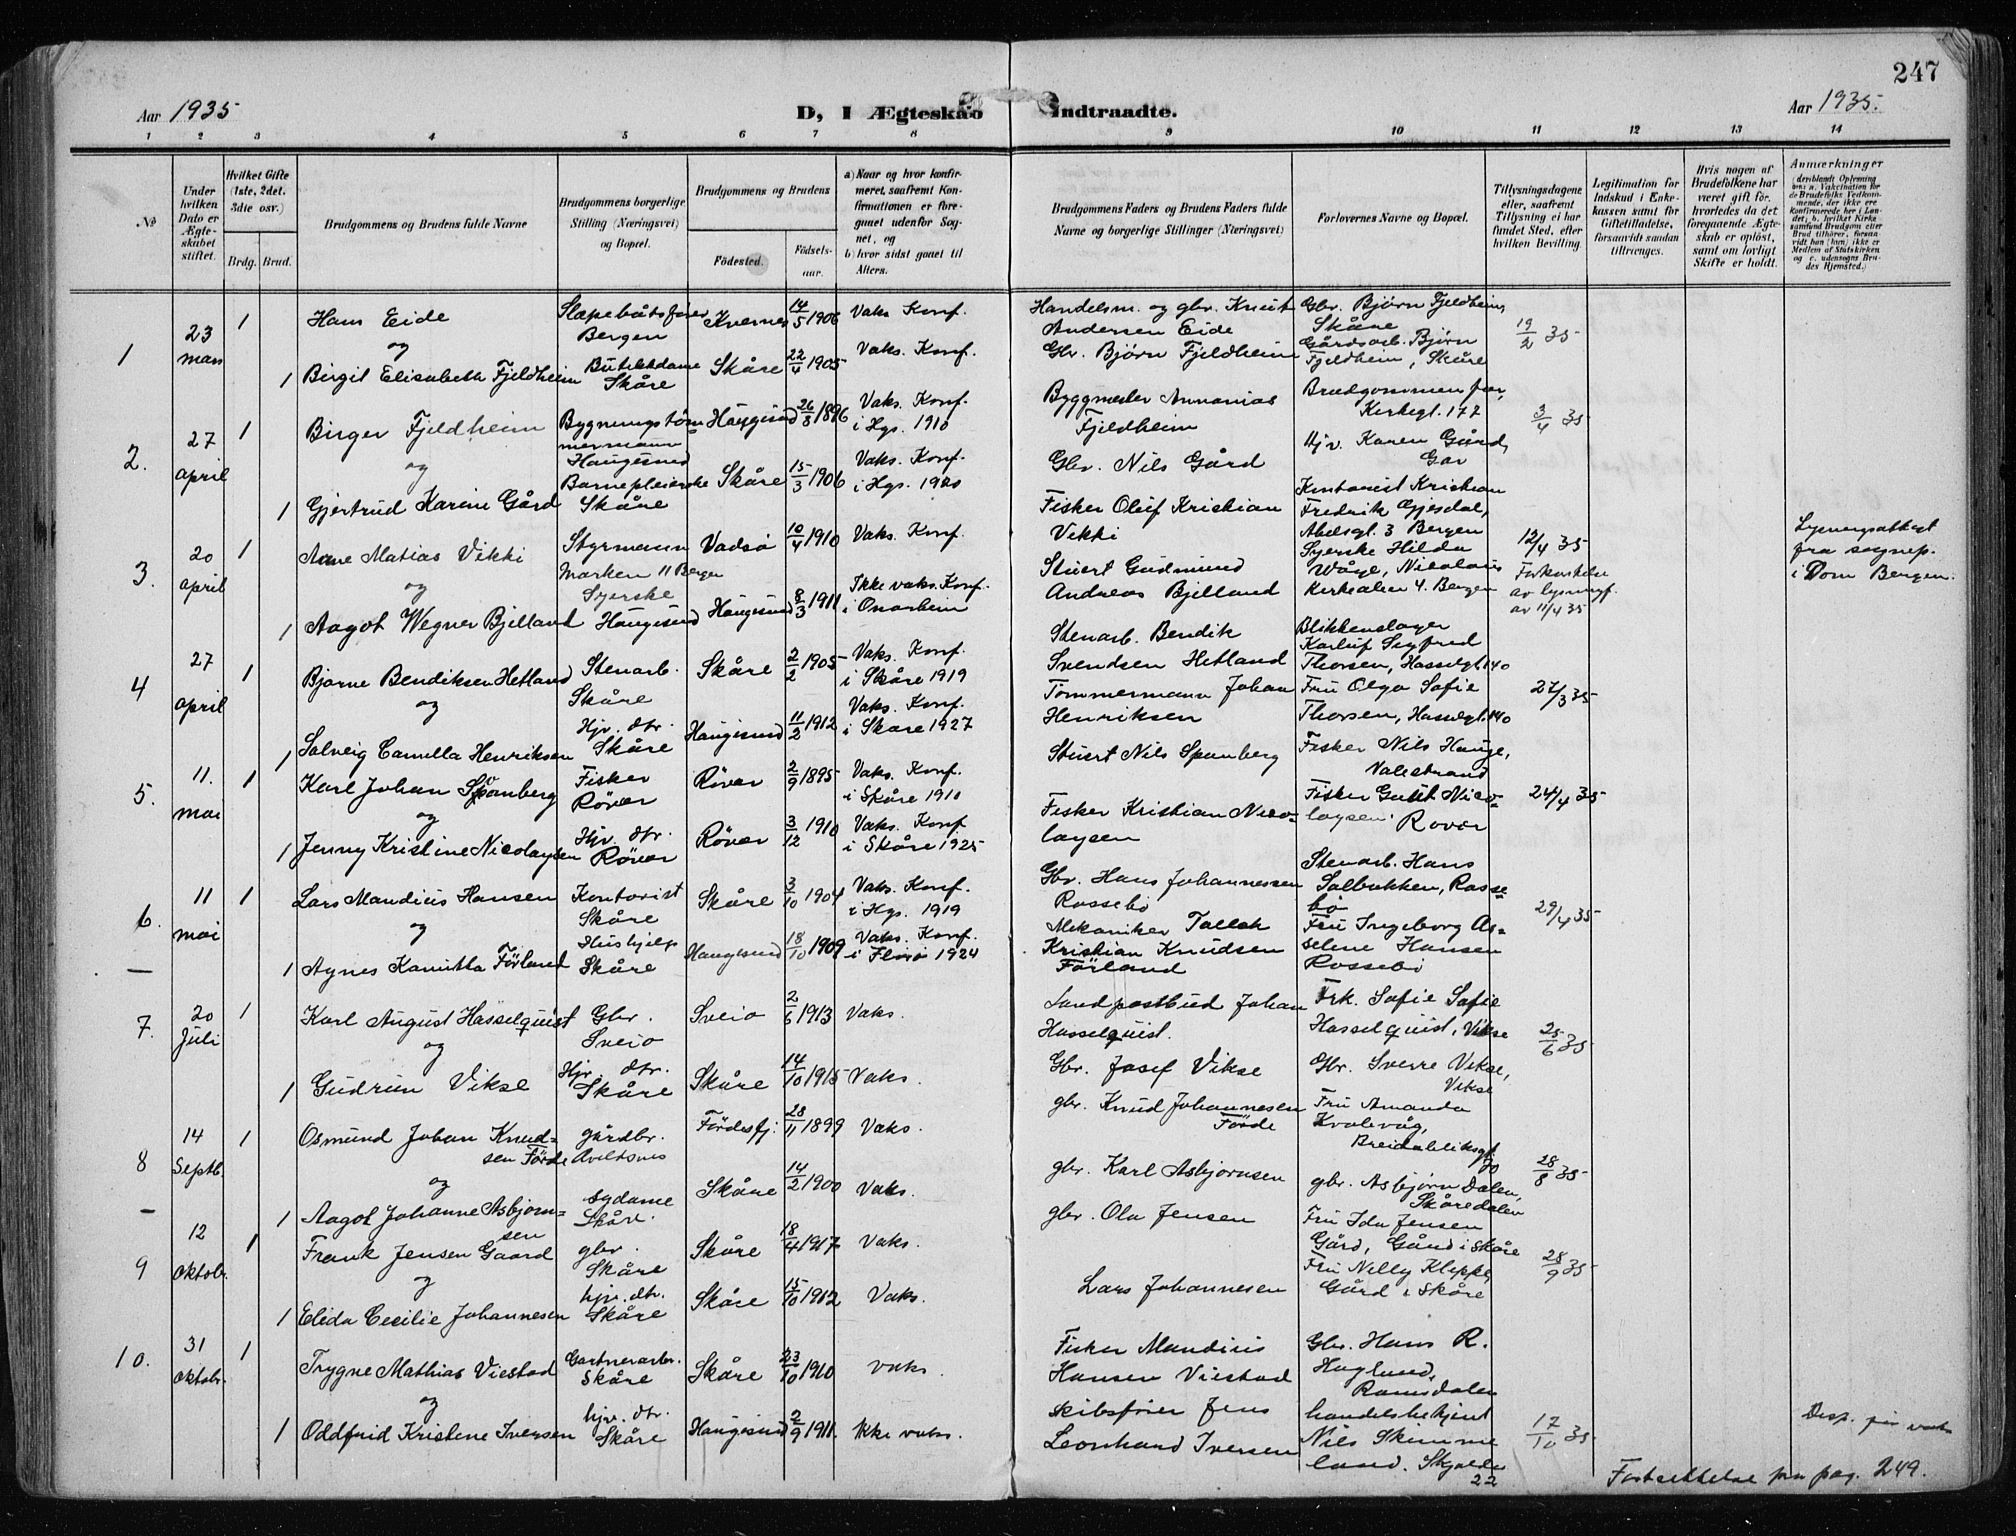 247
Aar 1935
D, I Ægteskab Indtraadte.
Aar 1935.
1 2 3 4 5 6 7 8 9 10 11 12 13 14
№
Under hvilken Dato er Ægteskabet stiftet.
Hvilket Gifte (1ste, 2det, 3die osv.)
Brdg. Brud.
Brudgommens og Brudens fulde Navne
Brudgommens borgerlige Stilling (Næringsvei) og Bopæl.
Brudgommens og Brudens
Födested.
Födselsaar.
a) Naar og hvor konfirmeret, saafremt Konfirmationen er foregaaet udenför Sognet, og
b) hvor sidst gaaet til Alters.
Brudgommens Faders og Brudens Faders fulde Navne og borgerlige Stillinger (Næringsvei)
Forlovernes Navne og Bopæl.
Tillysningsdagene eller, saafremt Tillysning ei har fundet Sted, efter hvilken Bevilling.
Legitimation for Indskud i Enkekassen samt for Giftetilladelse, forsaavidt saadan tiltrænges.
Hvis nogen af Brudefolkene har været gift för, hvorledes da det foregaaende Ægteskab er oplöst, samt om lovligt Skifte er holdt.
Anmærkninger
1 23 mars 1 Hans Eide Slæpebåtsfører Bergen Kvernes 14/5 1906 Vaks Konf. Handelsm. og gbr. Knut Andersen Eide Gbr. Bjørn Fjeldheim, Skåre 19/2 35
og
1 Birgit Elisabeth Fjeldheim Butikkdame Skåre Skåre 22/4 1905 Vaks. Konf. Gbr. Bjørn Fjeldheim Gårdsarb. Bjørn Fjeldheim, Skåre
2. 27 april 1 Birger Fjeldheim Bygningstømmermann Haugesund Haugesund 26/8 1896 Vaks. Konf. i Hgs. 1910 Byggmester Annanias Fjeldheim Brudgommen far, Kirkegt. 177 3/4 35
og
1 Gjertrud Karine Gård Barnepleierske Skåre Skåre 15/3 1906 Vaks. Konf. i Hgs. 1920 Gbr. Nils Gård Hjv. Karen Gård, Gar
3. 20 april 1 Arne Matias Vikki Styrmann Marken 11 Bergen Vadsø 10/4 1910 Vaks. Konf. Fisker Oluf Kristian Vikki Kontorist Kristian Fredrik Gjesdal, Abelsgt. 3 Bergen 12/4 35 Lysningsattest fra sognep. i Dom Bergen.
og
1 Aagot Wegner Bjelland Syerske Haugesund Haugesund 8/3 1911 Ikke vaks. Konf. i Onarheim Stuert Gudmund Andreas Bjelland Syerske Hilda Wåge, Nicolaus Kirkealeen 4. Bergen Forkastelse av lysningf. av 11/4 35
4 27 april 1 Bjarne Bendiksen Hetland Stenarb. Skåre Skåre 2/2 1905 Vaks. Konf. i Skåre 1919 Stenarb. Bendik Svendsen Hetland Blikkenslager Karluf Sigfred Thorsen, Hasselgt. 140 27/3 35
og
1 Solveig Camilla Henriksen Hjv. dtr. Skåre Haugesund 11/2 1912 Vaks. Konf. i Skåre 1927 Tømmermann Johan Henriksen Fru Olga Sofie Thorsen, Hasselgt. 140
5. 11. mai 1 Karl Johan Spanberg Fisker Røvær Røvær 2/9 1895 Vaks. Konf. i Skåre 1910 Stuert Nils Spanberg Fisker Nils Hauge, Valestrand 24/4 35
og
1 Jenny Kristine Nicolaysen Hjv. dtr. Røvær Røvær 3/12 1910 Vaks. Konf i Skåre 1925 Fisker Kristian Nicolaysen Fisker Gaut Nicolaysen Røvær
6. 11 mai 1 Lars Mandius Hansen Kontorist Skåre Skåre 3/10 1904 Vaks. Konf. i Hgs. 1919 Gbr. Hans Johannessen Rossebø Stenarb. Hans Solbakken, Rossebø 29/4 35
og
1 Agnes Kamitta Förland Hushjelp Skåre Haugesund 18/10 1909 Vaks. Konf. i Florö 1924 Mekaniker Tallak Kristian Knudsen Förland Fru Ingeborg Asselene Hansen Rossebö
7. 20 Juli 1 Karl August Hasselquist Gbr. Sveio Sveio 2/6 1913 Vaks. Landpostbud Johan Hasselquist. Frk. Sofie Sofie Hasselquist, Vikse 25/6 35
og
1 Gudrun Vikse Hjv. dtr. Skåre Skåre 14/10 1915 Vaks. Gbr. Josef Vikse Gbr. Sverre Vikse, Vikse
8 14 Septb. 1 Osmund Johan Knudsen Förde gårdbr. Aveltsnes Fördesfj. 28/11 1899 Vaks. gbr. Knud Johannesen Förde Fru Amanda Kvalevåg, Breidabliksgt 28/8 35
og
1 Aagot Johanne Asbjørnsen sydame Skåre. Skåre 14/2 1900 Vaks. gbr. Karl Asbjørnsen gbr. Asbjørn Dalen, Skåredalen
9 12 Oktobr. 1 Frank Jensen Gaard gbr. Skåre Skåre 18/4 1917 Vaks. gbr. Ola Jensen Fru Ida Jensen Gård, Gård i Skåre 28/9 35
og
1 Elida Cecilie Johannesen hjv. dtr. Skåre Skåre 15/10 1912 Vaks. Lars Johannesen Fru Nelly Kleppe, Gård i Skåre
10. 31 Oktobr. 1 Trygve Mathias Viestad Gartnerarbr. Skåre Skåre 23/10 1910 vaks Fisker Mandius Hansen Viestad Gbr. Hans R. Haglund, Ramsdalen 17/10 35
og
1 Oddfrid Kristene Iversen hjv. dtr. Skåre Haugesund 2/9 1911. Ikke vaks. Skibsfører Jens Leonhard Iversen handelsbetjent Nils Skimmeland. Skjolde 22 Disp. for vaks
Fortsettelse på pag. 249.